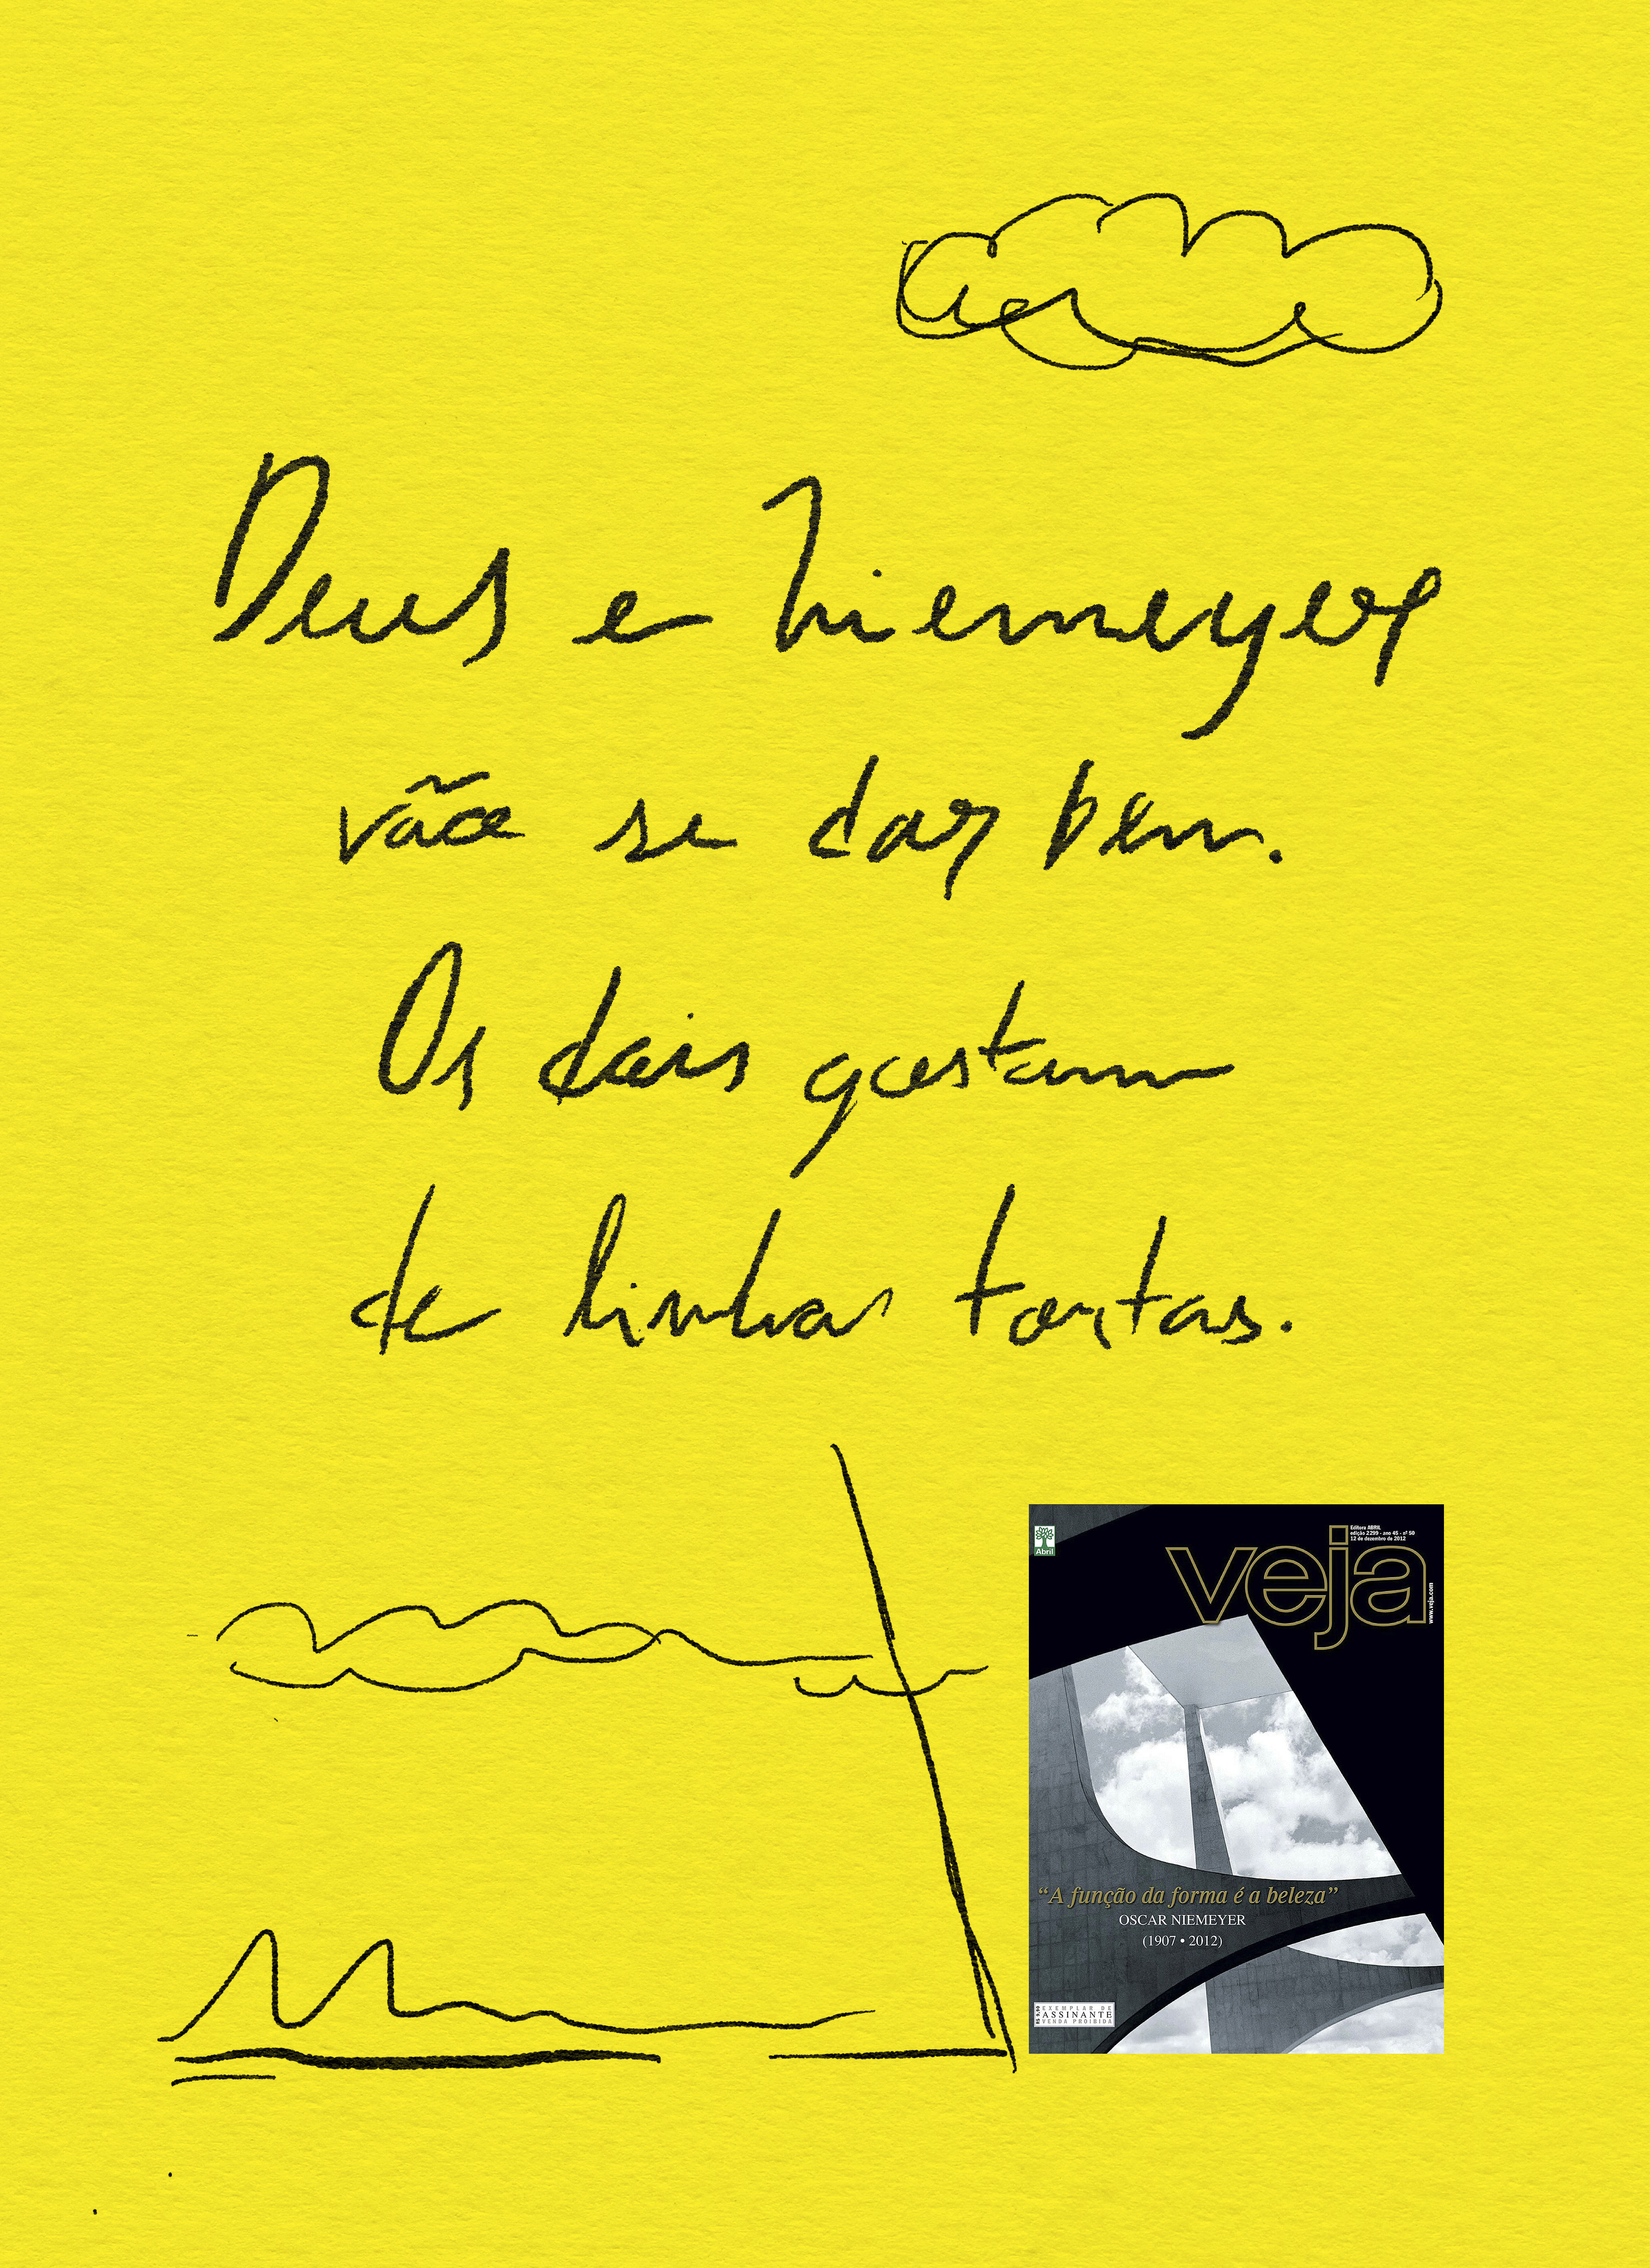 Deus e Niemeyer
vão se dar bem.
Os dois gostam
de linhas tortas.
Abril
veja
Editora ABRIL
edição 2299 - ano 45 - nº 50
12 de dezembro de 2012
www.veja.com
“A função da forma é a beleza”
OSCAR NIEMEYER
(1907 • 2012)
EXEMPLAR DE
ASSINANTE
VENDA PROIBIDA